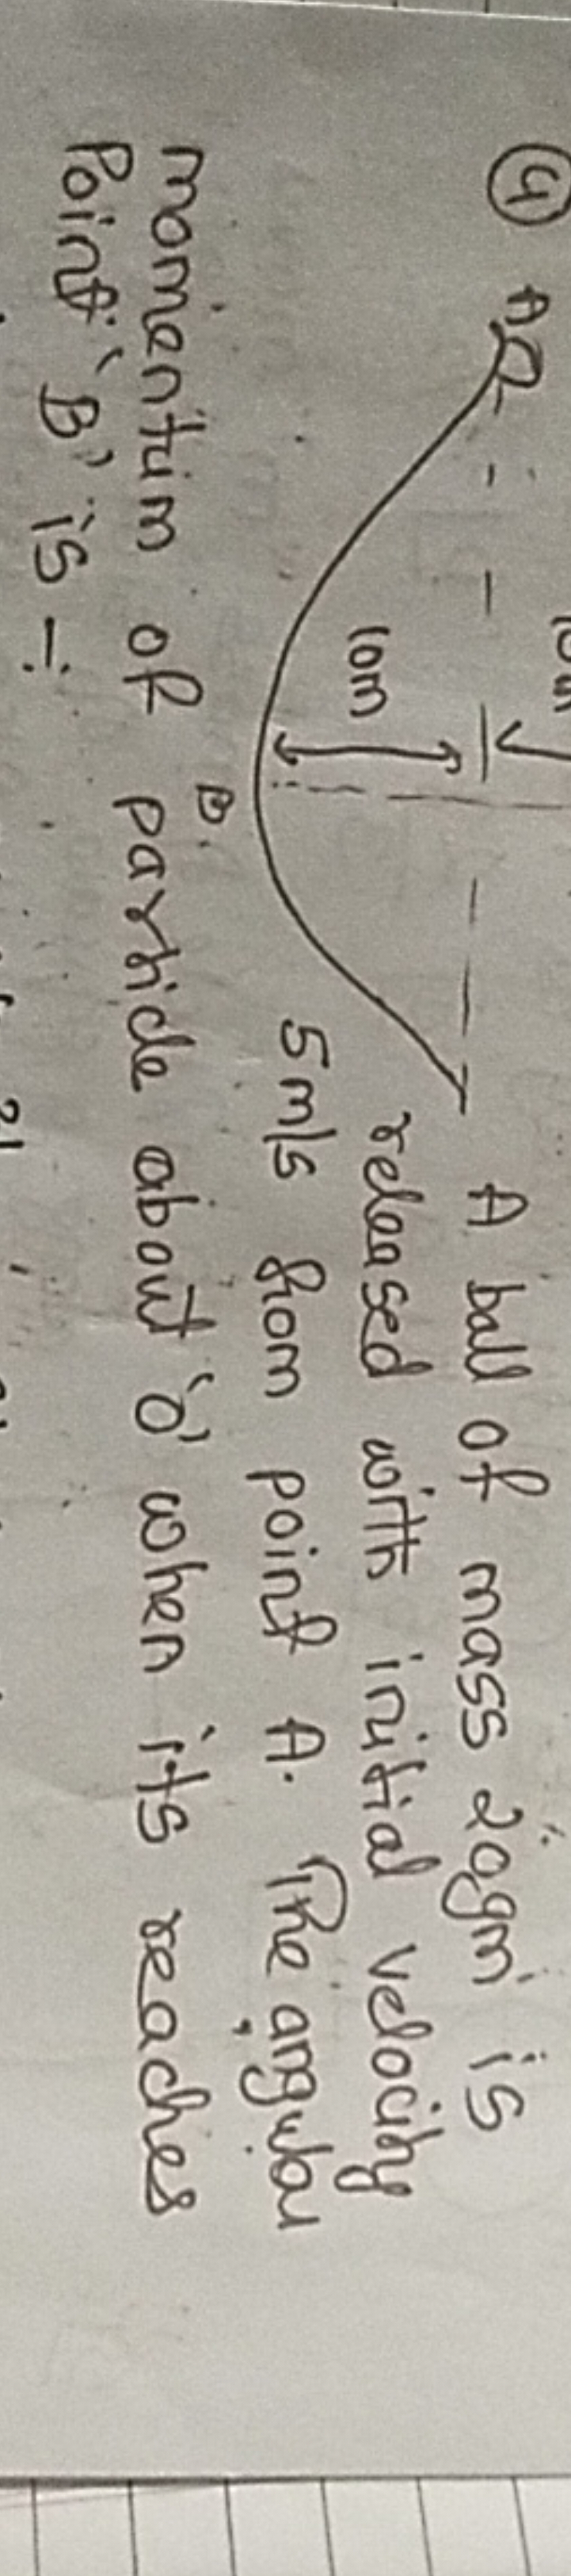 4
A
10m
10m
B
A ball of mass 20gm is
released with initial velocity
5m/s from point A. The angular
momentum of particle about 'O' when its reaches
Point 'B' is :-